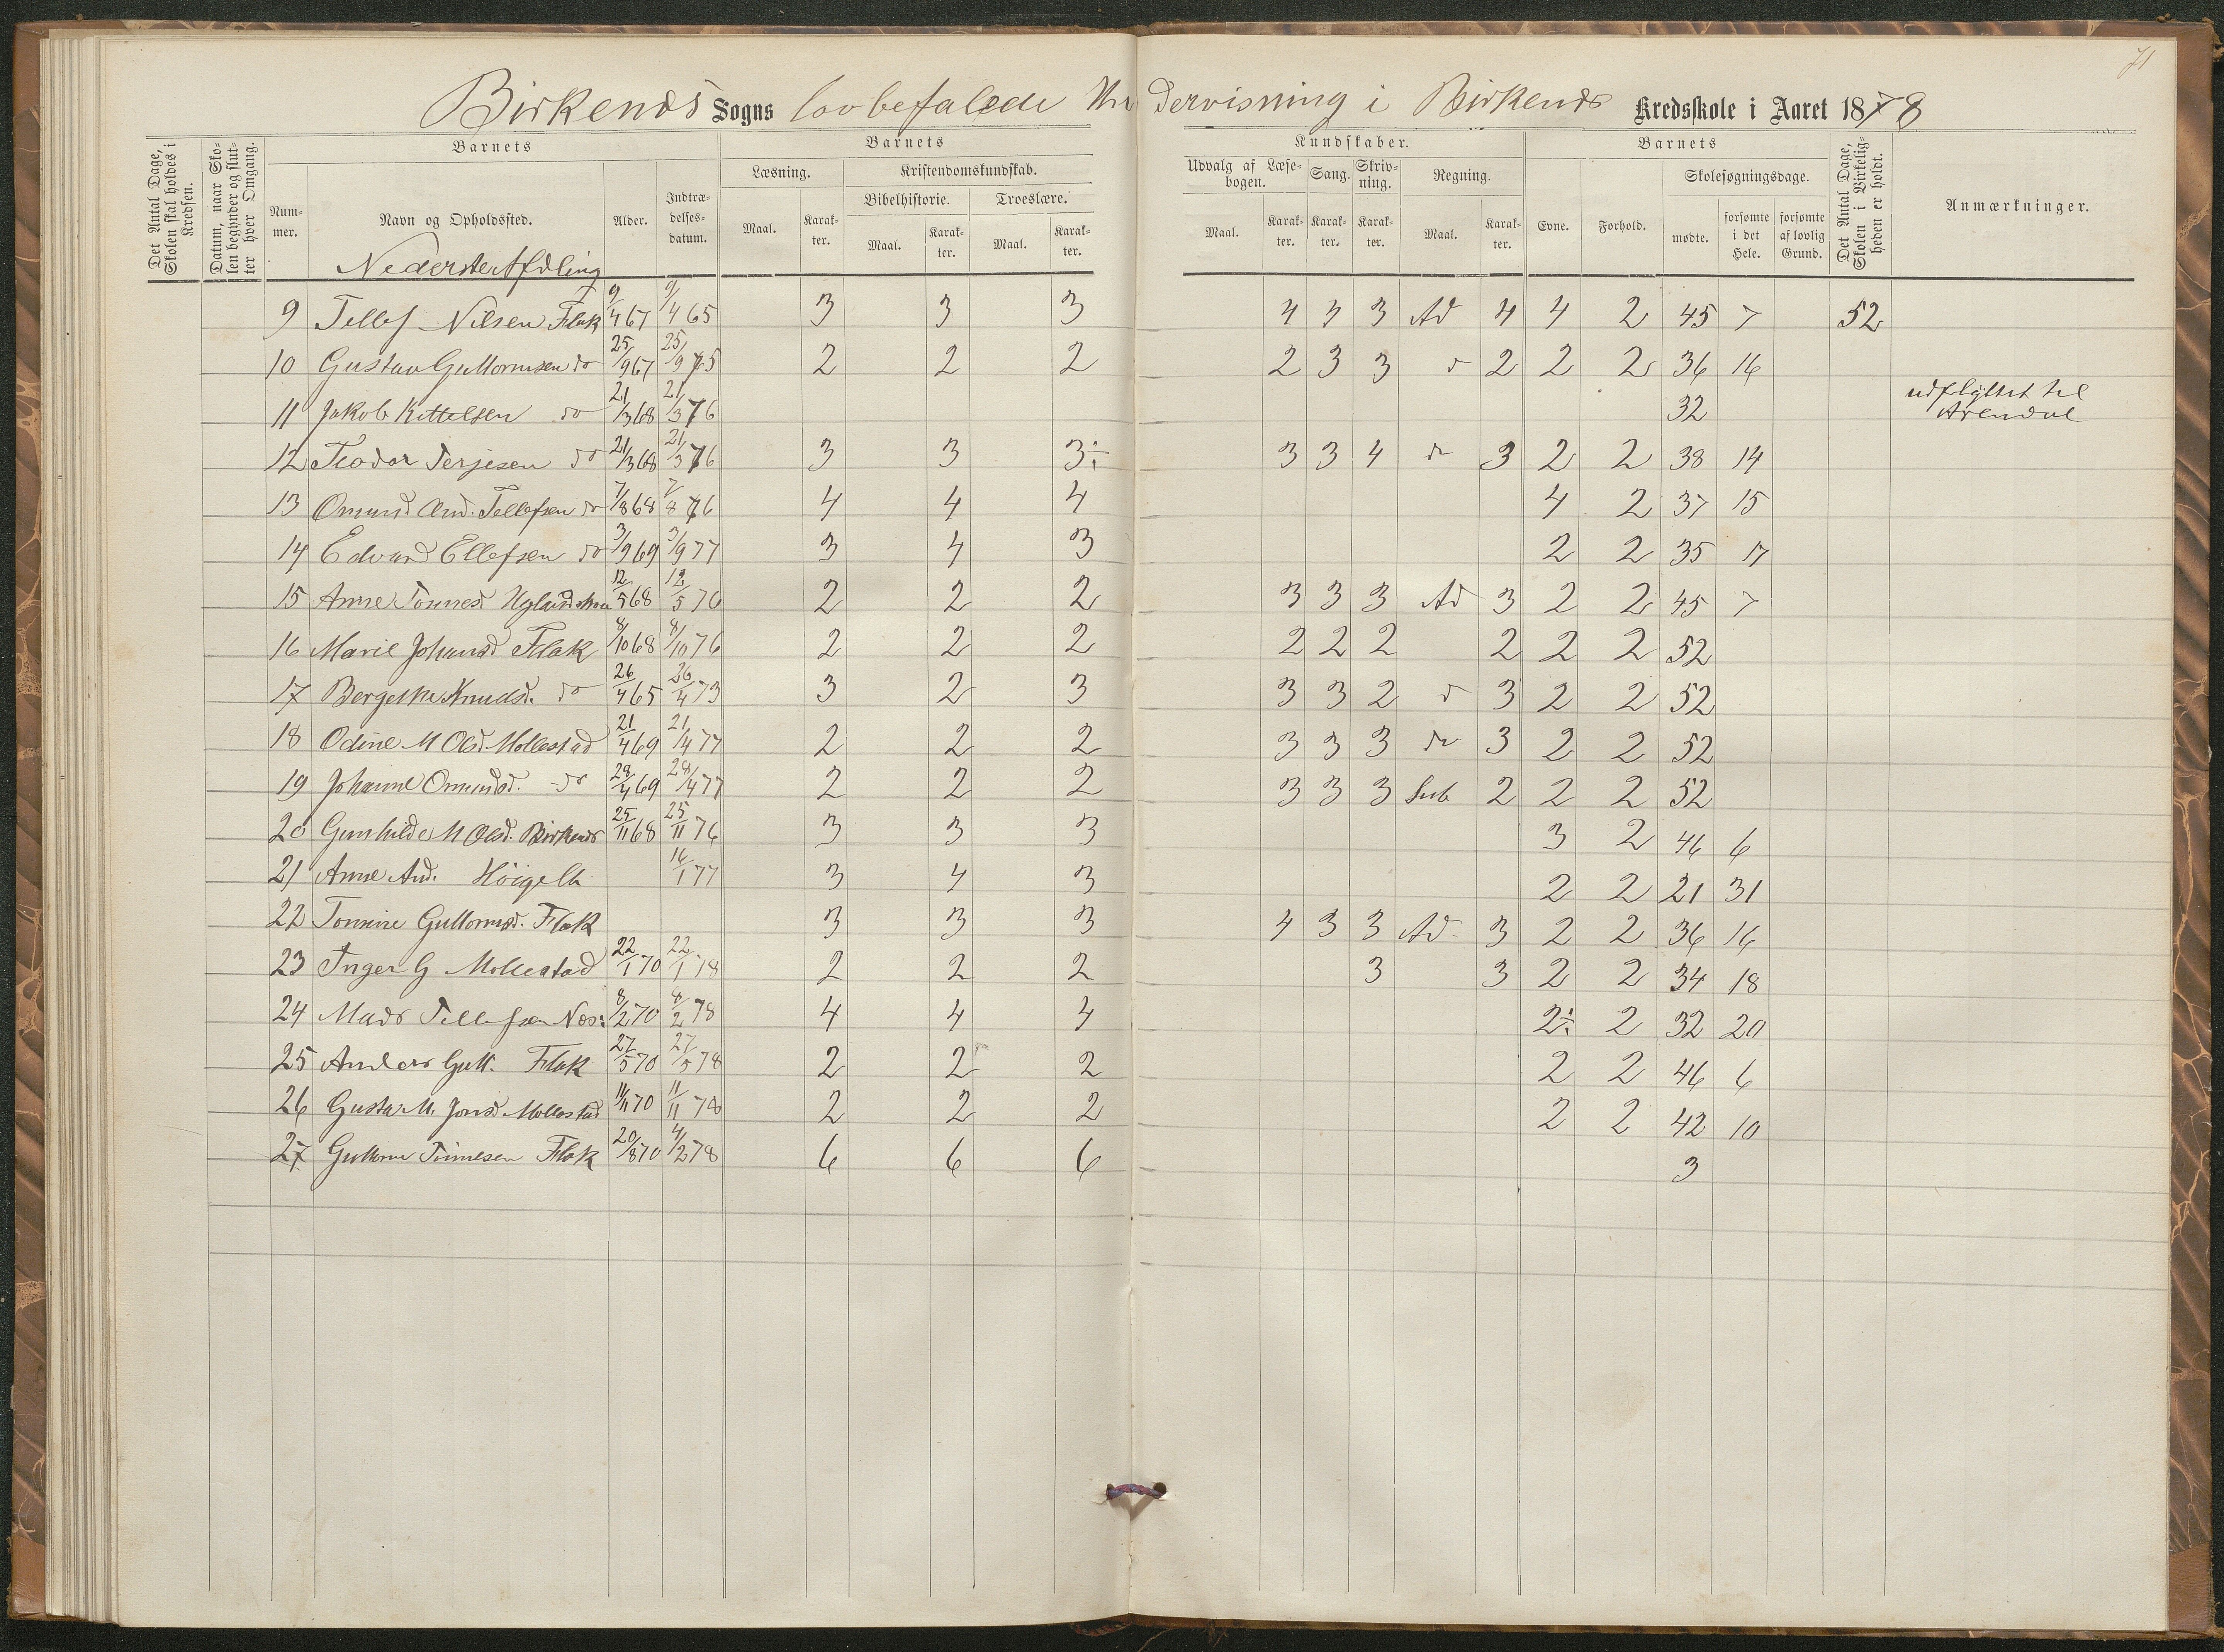 71
Birkenes Sogns lovbefalede Undervisning i Birkenes Kredsskole i Aaret 1878
Det Antal Dage, Skolen skal holdes i Kredsen.
Datum, naar Skolen begynder og slutter hver Omgang.
Barnets
Nummer.
Navn og Opholdssted.
Alder.
Indtrædelsesdatum.
Barnets
Læsning.
Maal.
Karakter.
Kristendomskundskab.
Bibelhistorie.
Maal.
Karakter.
Troeslære.
Maal.
Karakter.
Kundskaber.
Udvalg af Læsebogen.
Maal.
Karakter.
Sang.
Karakter.
Skrivning.
Karakter.
Regning.
Maal.
Karakter.
Barnets
Evne.
Forhold.
Skolesøgningsdage.
mødte.
forsømte i det Hele.
forsømte af lovlig Grund.
Det Antal Dage, Skolen i Virkeligheden er holdt.
Anmærkninger.
Nederste Afdeling
9 Tellef Nilsen Flak 9/4 67 9/4 65 3 3 3 4 4 3 Ad 4 4 2 45 7 52
10 Gustav Guttormsen do 25/9 67 25/9 75 2 2 2 2 3 3 d 2 2 2 36 16
11 Jakob Kittelsen do 21/3 68 21/3 76 32 udflyttet til Arendal
12 Teodor Terjesen do 21/3 68 21/3 76 3 3 3÷ 3 3 4 do 3 2 2 38 14
13 Omund And. Tellefsen do 7/8 68 7/8 76 4 4 4 4 2 37 15
14 Edvard Ellefsen do 3/9 69 3/9 77 3 4 3 2 2 35 17
15 Anne Tønnesd. 12/5 68 12/5 76 2 2 2 3 3 3 Ad 3 2 2 45 7
16 Marie Johansd Flak 8/10 68 8/10 76 2 2 2 2 2 2 2 2 2 52
17 Bergethe Knudsd. do 26/4 65 26/4 73 3 2 3 3 3 2 d 3 2 2 52
18 Odine M Olsd. Mollestad 21/4 69 21/4 77 2 2 2 3 3 3 do 3 2 2 52
19 Johanne Omundsd. do 28/4 69 28/4 77 2 2 2 3 3 3 Sub 2 2 2 52
20 Gunhilde M Olsd. Birkenes 25/11 68 25/11 76 3 3 3 3 2 46 6
21 Anne And. 16/1 77 3 4 3 2 2 21 31
22 Tomine Guttormsd. Flak 3 3 3 4 3 3 Ad 3 2 2 36 16
23 Inger G Mollestad 22/1 70 22/1 78 2 2 2 3 3 2 2 34 18
24 Mads Tellefsen Næs: 8/2 70 8/2 78 4 4 4 2÷ 2 32 20
25 Anders Gutt. Flak 27/5 70 27/5 78 2 2 2 2 2 46 6
26 Gusta M. Jonsd. Mollestad 11/11 70 11/11 78 2 2 2 2 2 42 10
27 Guttorm Tønnesen Flak 20/8 70 4/2 78 6 6 6 3